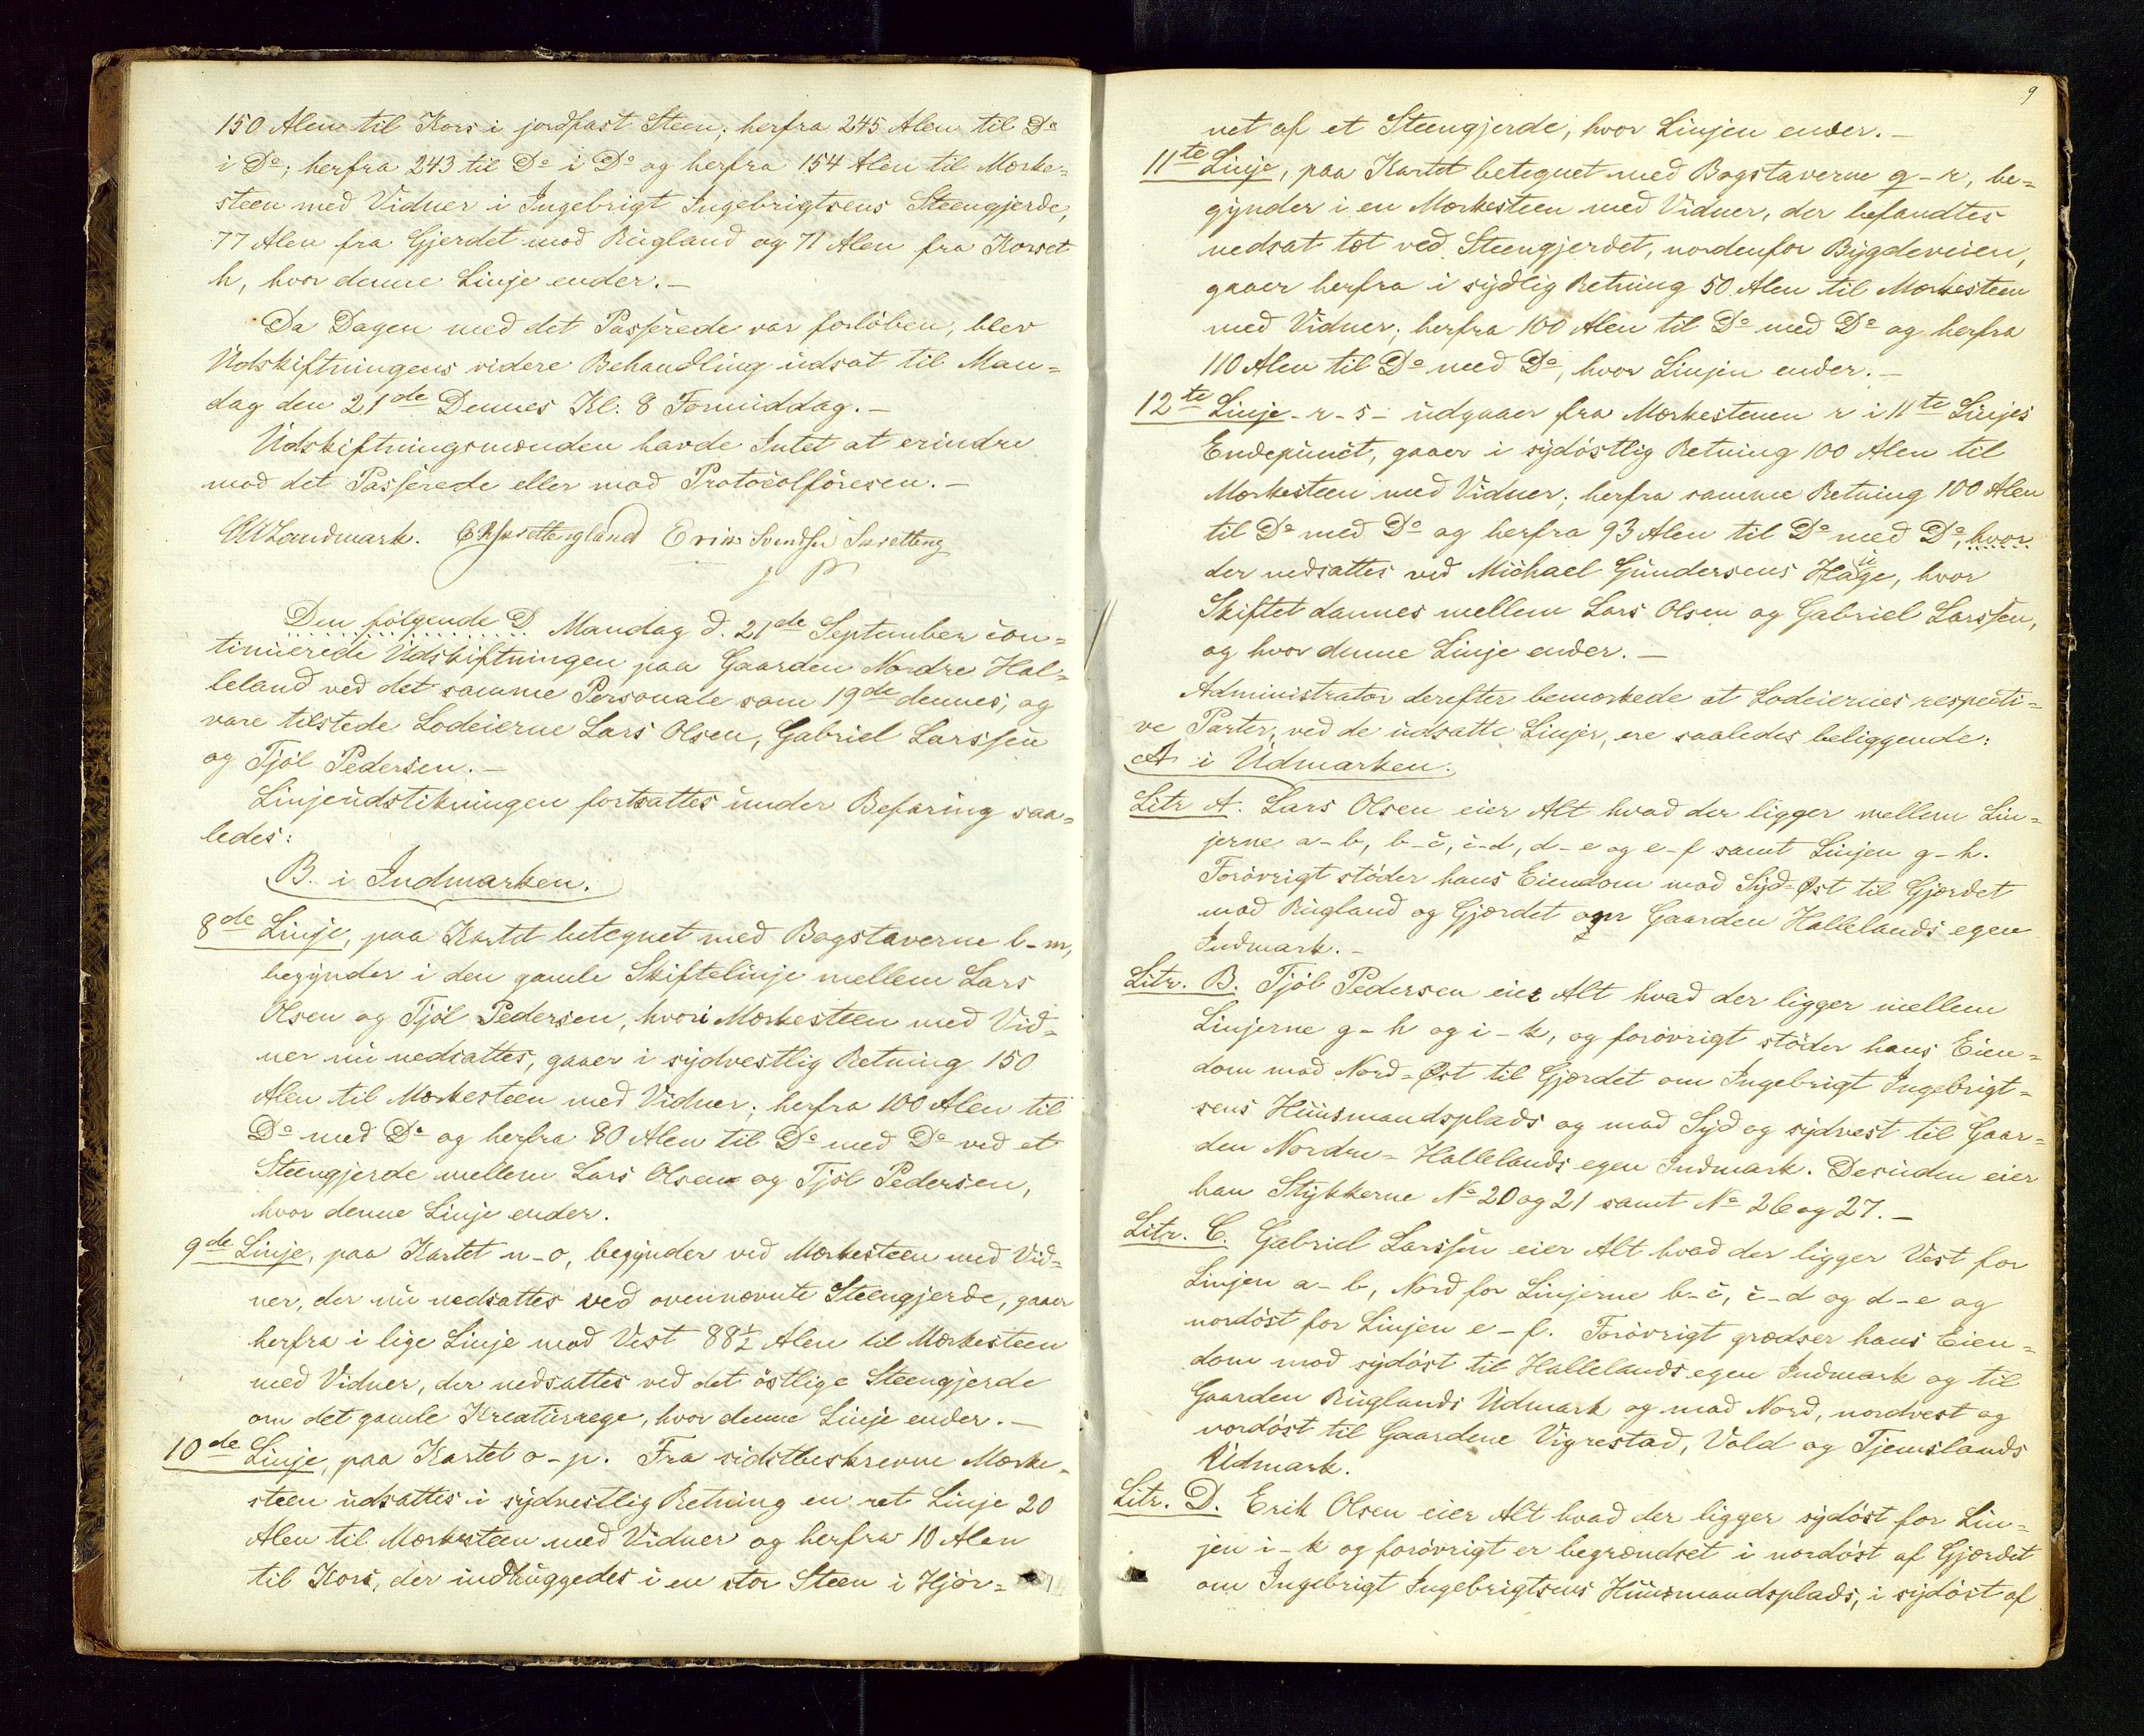 150 Alen til Kors i jordfast Steen; herfra 245 Alen til Do
i Do; herfra 243 til Do i Do og herfra 154 Alen til Mærke=
steen med Vidner i Ingebrigt Ingebrigtsens Steengjerde,
77 Alen fra Gjerdet mod Rugland og 71 Alen fra Korset
h, hvor denne Linje ender.—
Da Dagen med det Passerede var forløben, blev
Udskiftningens videre Behandling udsat til Man=
dag den 21de Dennes Kl: 8 Formiddag.—
Udskiftningsmænden havde Intet at erindre
mod det Passerede eller mod Protocolføresen.—
Landmark. Erik Svendsen
Den følgende D Mandag d. 21de September con=
tinuerede Udskiftningen paa Gaarden Nordre Hal=
leland ved det samme Personale som 19de dennes; og
vare tilstede Lodeierne Lars Olsen, Gabriel Larssen
og Tjøl Pedersen.—
Linjeudstikningen fortsattes under Befaring saa=
ledes:
B. i Indmarken.
8de Linje, paa Kartet betegnet med Bogstaverne l-m,
begynder i den gamle Skiftelinje mellem Lars
Olsen og Tjøl Pedersen, hvori Mærkesteen med Vid=
ner nu nedsattes, gaaer i sydvestlig Retning 150
Alen til Mærkesteen med Vidner; herfra 100 Alen til
Do med Do og herfra 80 Alen til Do med Do ved et
Steengjerde mellem Lars Olsen og Tjøl Pedersen,
hvor denne Linje ender.
9de Linje, paa Kartet n-o, begynder ved Mærkesteen med Vid=
ner, der nu nedsattes ved ovennævnte Steengjerde, gaaer
herfra i lige Linje mod Vest 88½ Alen til Mærkesteen
med Vidner, der nedsattes ved det østlige Steengjerde
om det gamle Kreaturrege, hvor denne Linje ender.—
10de Linje, paa Kartet o-p. Fra sidstbeskrevne Mærke=
steen udsattes i sydvestlig Retning en ret Linje 20
Alen til Mærkesteen med Vidner og herfra 10 Alen
til Kors, der indhuggedes i en stor Steen i Hjør=
9
net af et Steengjerde, hvor Linjen ender.—
11te Linje, paa Kartet betegnet med Bogstaverne q-r, be=
gynder i en Mærkesteen med Vidner, der befandtes
nedsat tæt ved Steengjerdet, nordenfor Bygdeveien,
gaaer herfra i sydlig Retning 50 Alen til Mærkesteen
med Vidner; herfra 100 Alen til Do med Do og herfra
110 Alen til Do med Do, hvor Linjen ender.—
12te Linje - r-s - udgaaer fra Mærkestenen r i 11te Linjes
Endepunct, gaaer i sydøstlig Retning 100 Alen til
Mærkesteen med Vidner; herfra samme Retning 100 Alen
til Do med Do og herfra 93 Alen til Do med Do, hvor
der nedsattes ved Michael Gundersens Hage, hvor
Skiftet dannes mellem Lars Olsen og Gabriel Larssen,
og hvor denne Linje ender.—
Administrator derefter bemærkede at Lodeiernes respecti=
ve Parter, ved de udsatte Linjer, ere saaledes beliggende:
A i Udmarken.
Litr A. Lars Olsen eier Alt hvad der ligger mellem Lin=
jerne a-b, b-c, c-d, d-e og e-f samt Linjen g-h.
Forøvrigt støder hans Eiendom mod Syd=Øst til Gjærdet
mod Rugland og Gjærdet om Gaarden Hallelands egen
Indmark.—
Litr. B. Tjøl Pedersen eier Alt hvad der ligger mellem
Linjerne g-h og i-k, og forøvrigt støder hans Eien=
dom mod Nord=Øst til Gjærdet om Ingebrigt Ingebrigt=
sens Huusmandsplads og mod Syd og sydvest til Gaar=
den Nordre=Hallelands egen Indmark. Desuden eier
han Stykkerne No 20 og 21 samt No 26 og 27.—
Litr. C. Gabriel Larssen eier Alt hvad der ligger Vest for
Linjen a-b, Nord for Linjerne b-c, c-d og d-e og
nordøst for Linjen e-f. Forøvrigt grædser hans Eien=
dom mod sydøst til Hallelands egen Indmark og til
Gaarden Ruglands Udmark og mod Nord, nordvest og
nordøst til Gaardene Vigrestad, Vold og Tjemslands
Udmark.
Litr. D. Erik Olsen eier Alt hvad der ligger sydøst for Lin=
jen i-k og forøvrigt er begrændset i nordøst af Gjærdet
om Ingebrigt Ingebrigtsens Huusmandsplads, i sydøst af